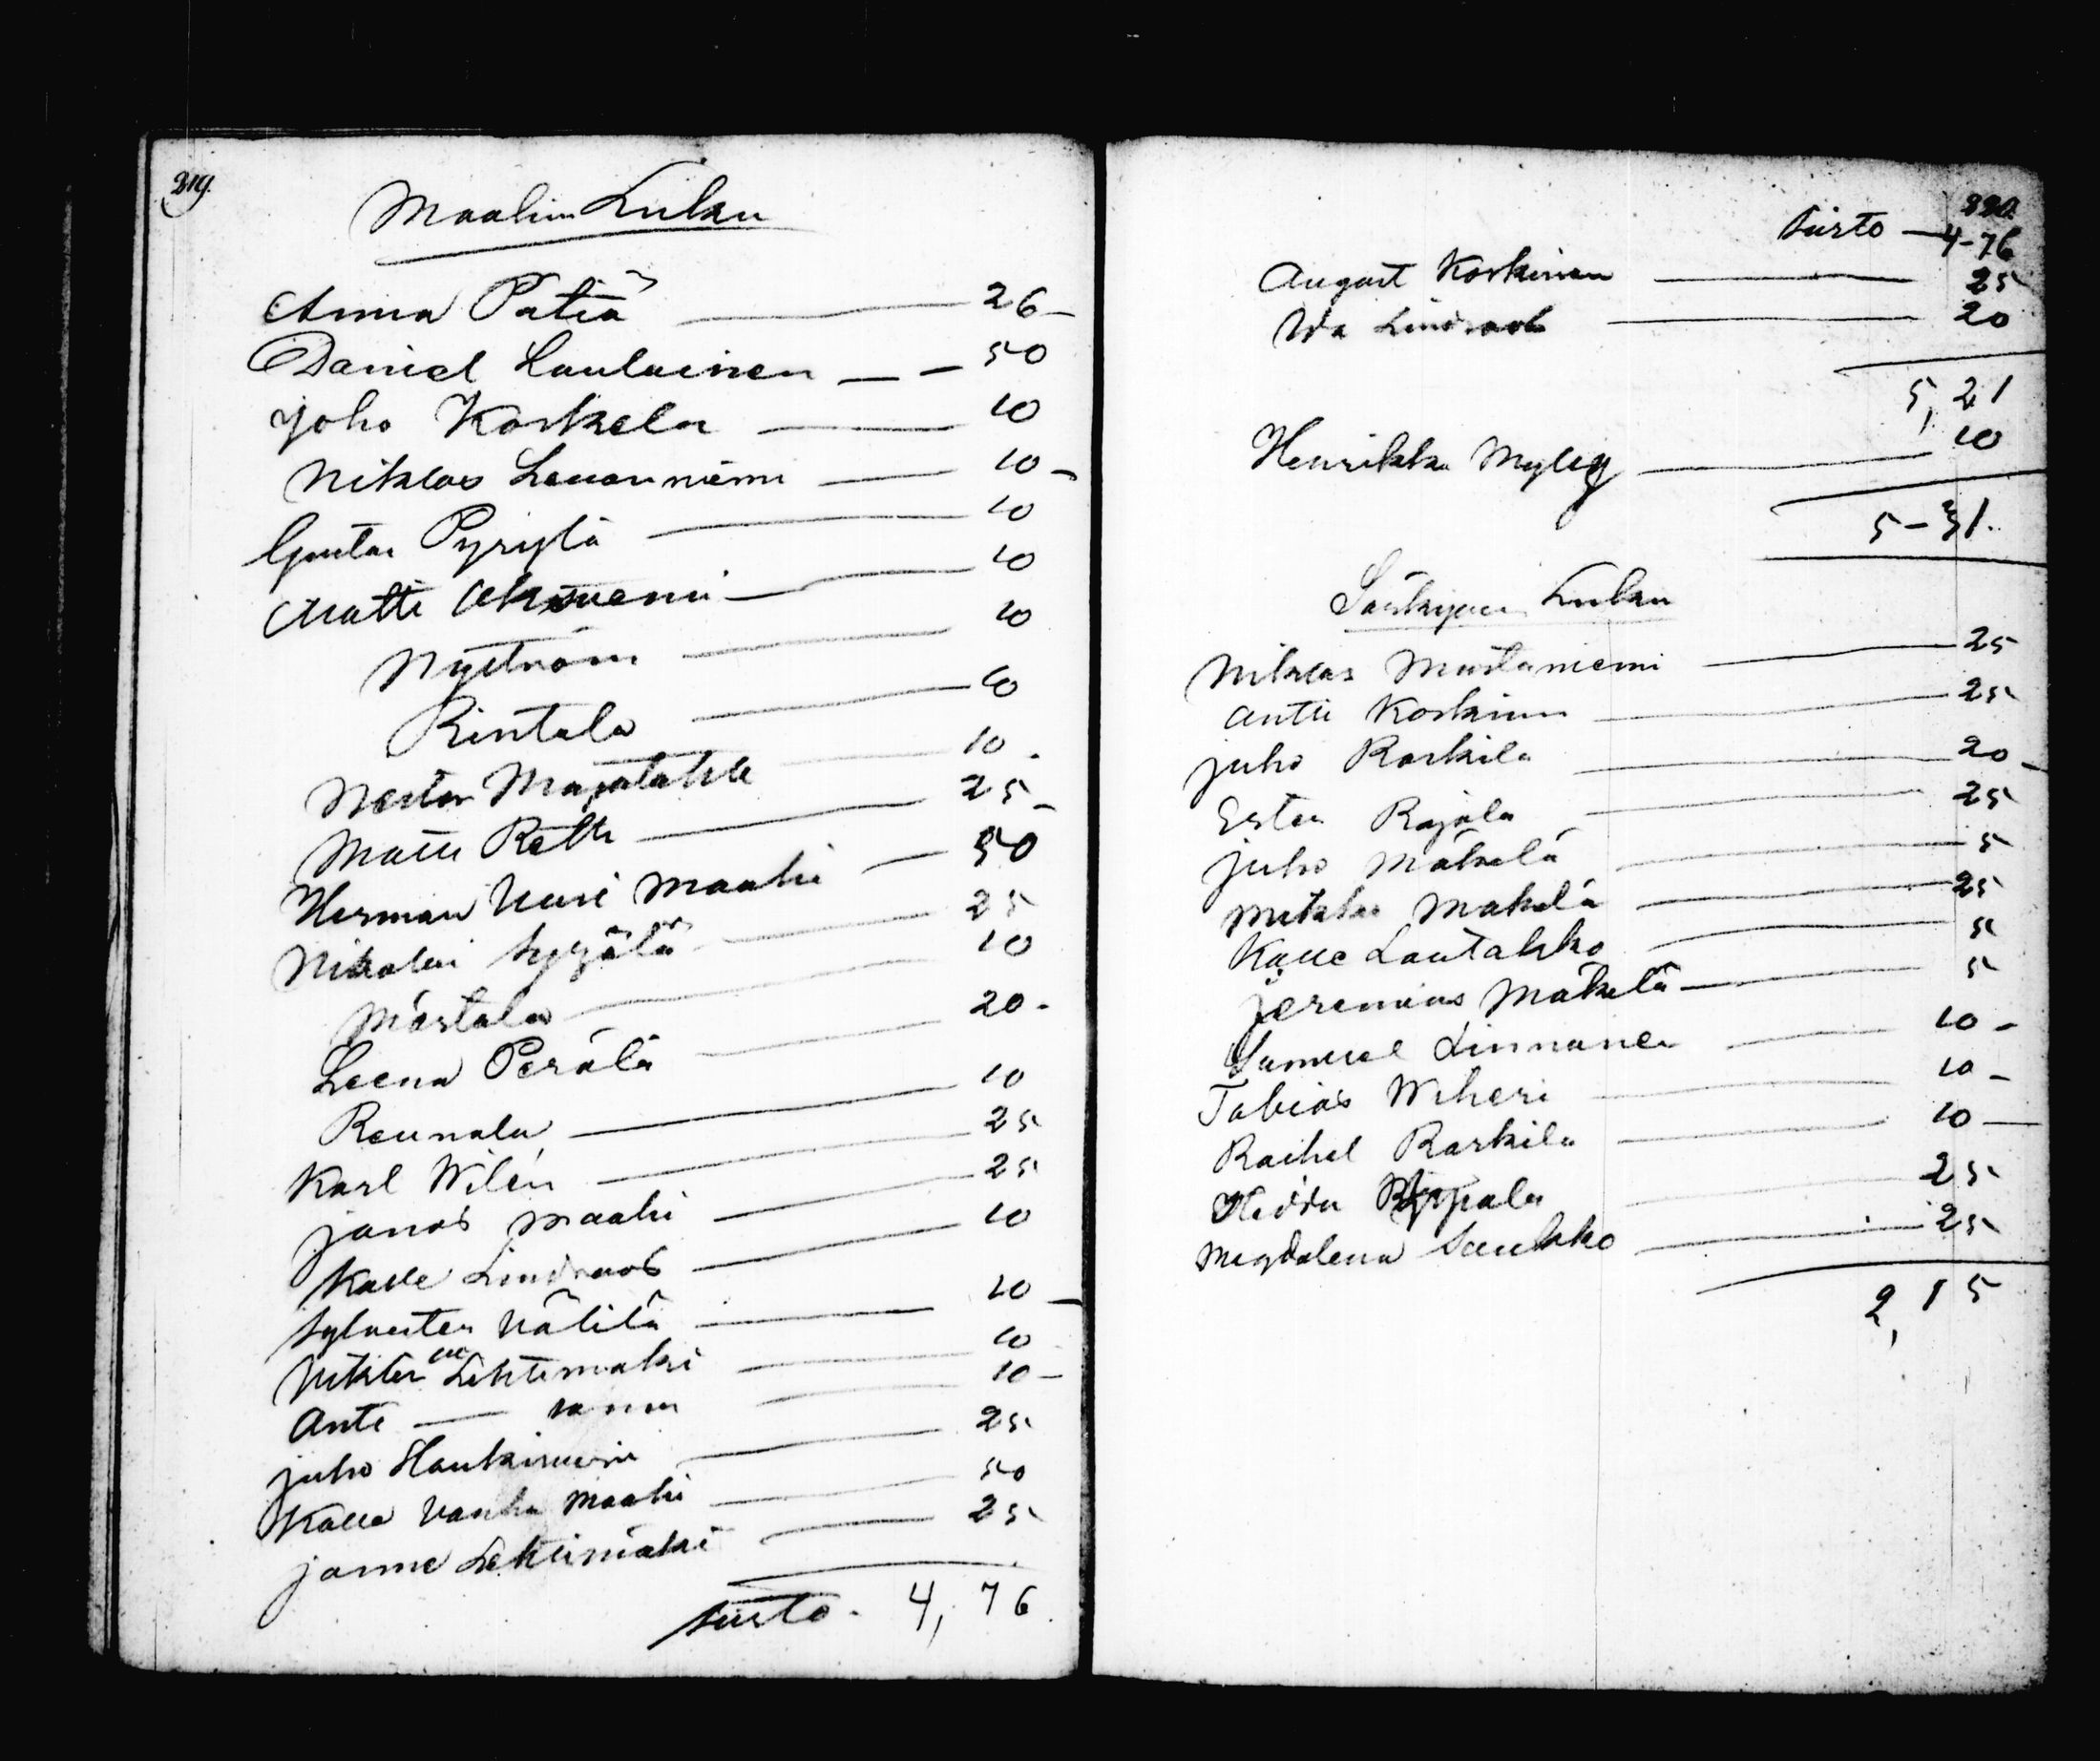 219.
Maalin Luku
Anna Patiä 26
Daniel Laulainen 50
Joho Koskela 10
Niklas Leuanniemi 10
Gustav Pyrylä 10
Matti 10
Nyström 10
Rintala 10
Nestor Majalahti 10
Matti Retti 25
Herman Uusi Maahi 50
Nikolai Syrjälä 25
Mástala 10
Leena Perälä 20
Reunala 10
Karl Wilén 25
Jonas Maahi 25
Kalle Lindroos 10
Sylvester Välilä 10
Vikter Lehtimaki 10
Ante — sama 10
Juho Haukiniemi 25
Kalle Vanha Maahi 50
Janne Lehtimäki 25
siirto. 4,76
220.
Siirto 4-76
August Koskinen 25
Ida Lindroos 20
5,21
Henrikka Myley 10
5-31.
Särkijoen Luku
Niklas Mustaniemi 25
Antti Koskinen 25
Juho Raskila 20
Ester Rajala 25
Juho Mäkelä 5
Makelä 25
Kalle Lautakko 5
Jeremias Mäkelä 5
Samuel Linnanen 10
Tobias Wiheri 10
Rachel Raskila 10
Hedda 25
Magdalena Saukko 25
2,15